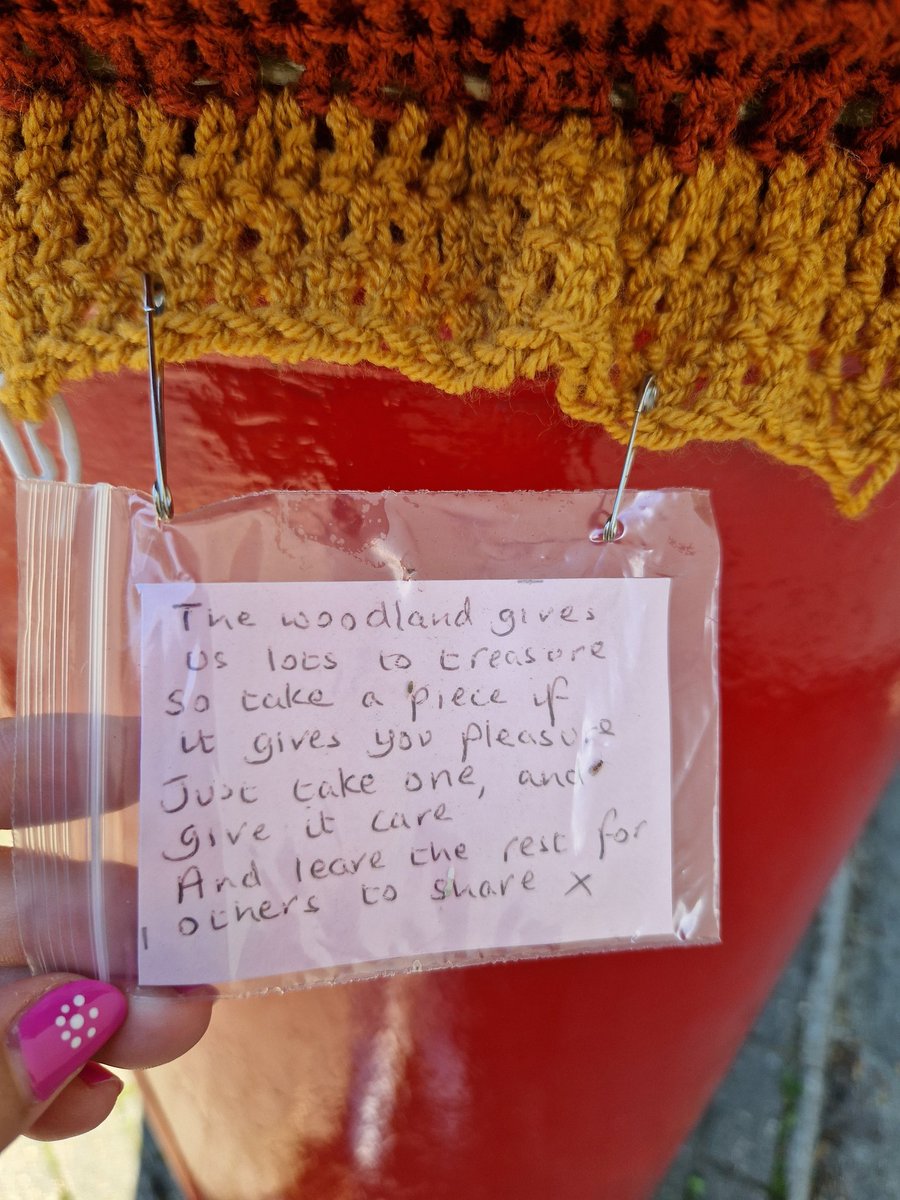 The woodland gives
us lots to treasure
so take a piece if
it gives you pleasure
Just take one, and
give it care
And leave the rest for
others to share x